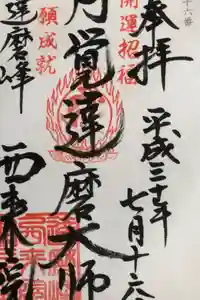 十六番
奉拝
開運招福
平成三十年七月十六日
円覚達磨大師
願成就
達磨峰
西来院